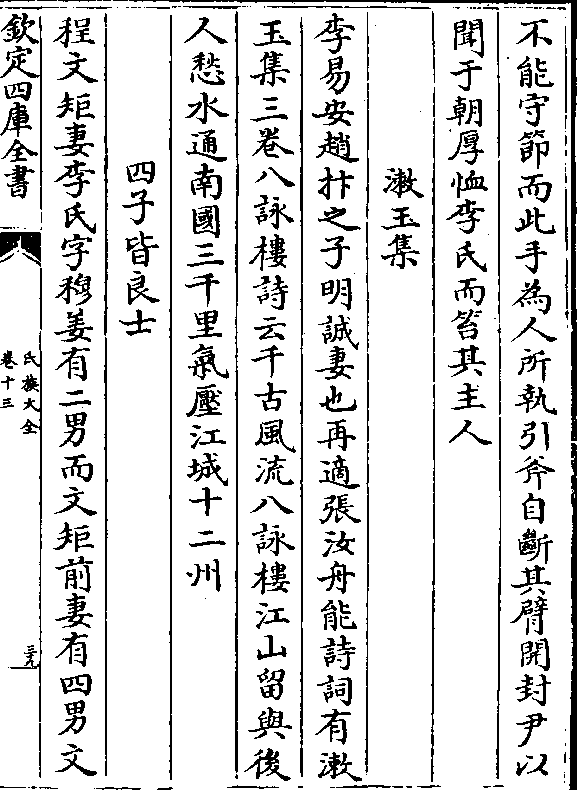 不能守節而此手為人所執引斧自斷其臂開封尹以
聞于朝厚恤李氏而笞其主人
漱玉集
李易安趙抃之子明誠妻也再適張汝舟能詩詞有漱
玉集三卷八詠樓詩云千古風流八詠樓江山留與後
人愁水通南國三千里氣壓江城十二州
四子皆良士
程文矩妻李氏字穆姜有二男而文矩前妻有四男文
欽定四庫全書
氏族大全
卷十三
三九